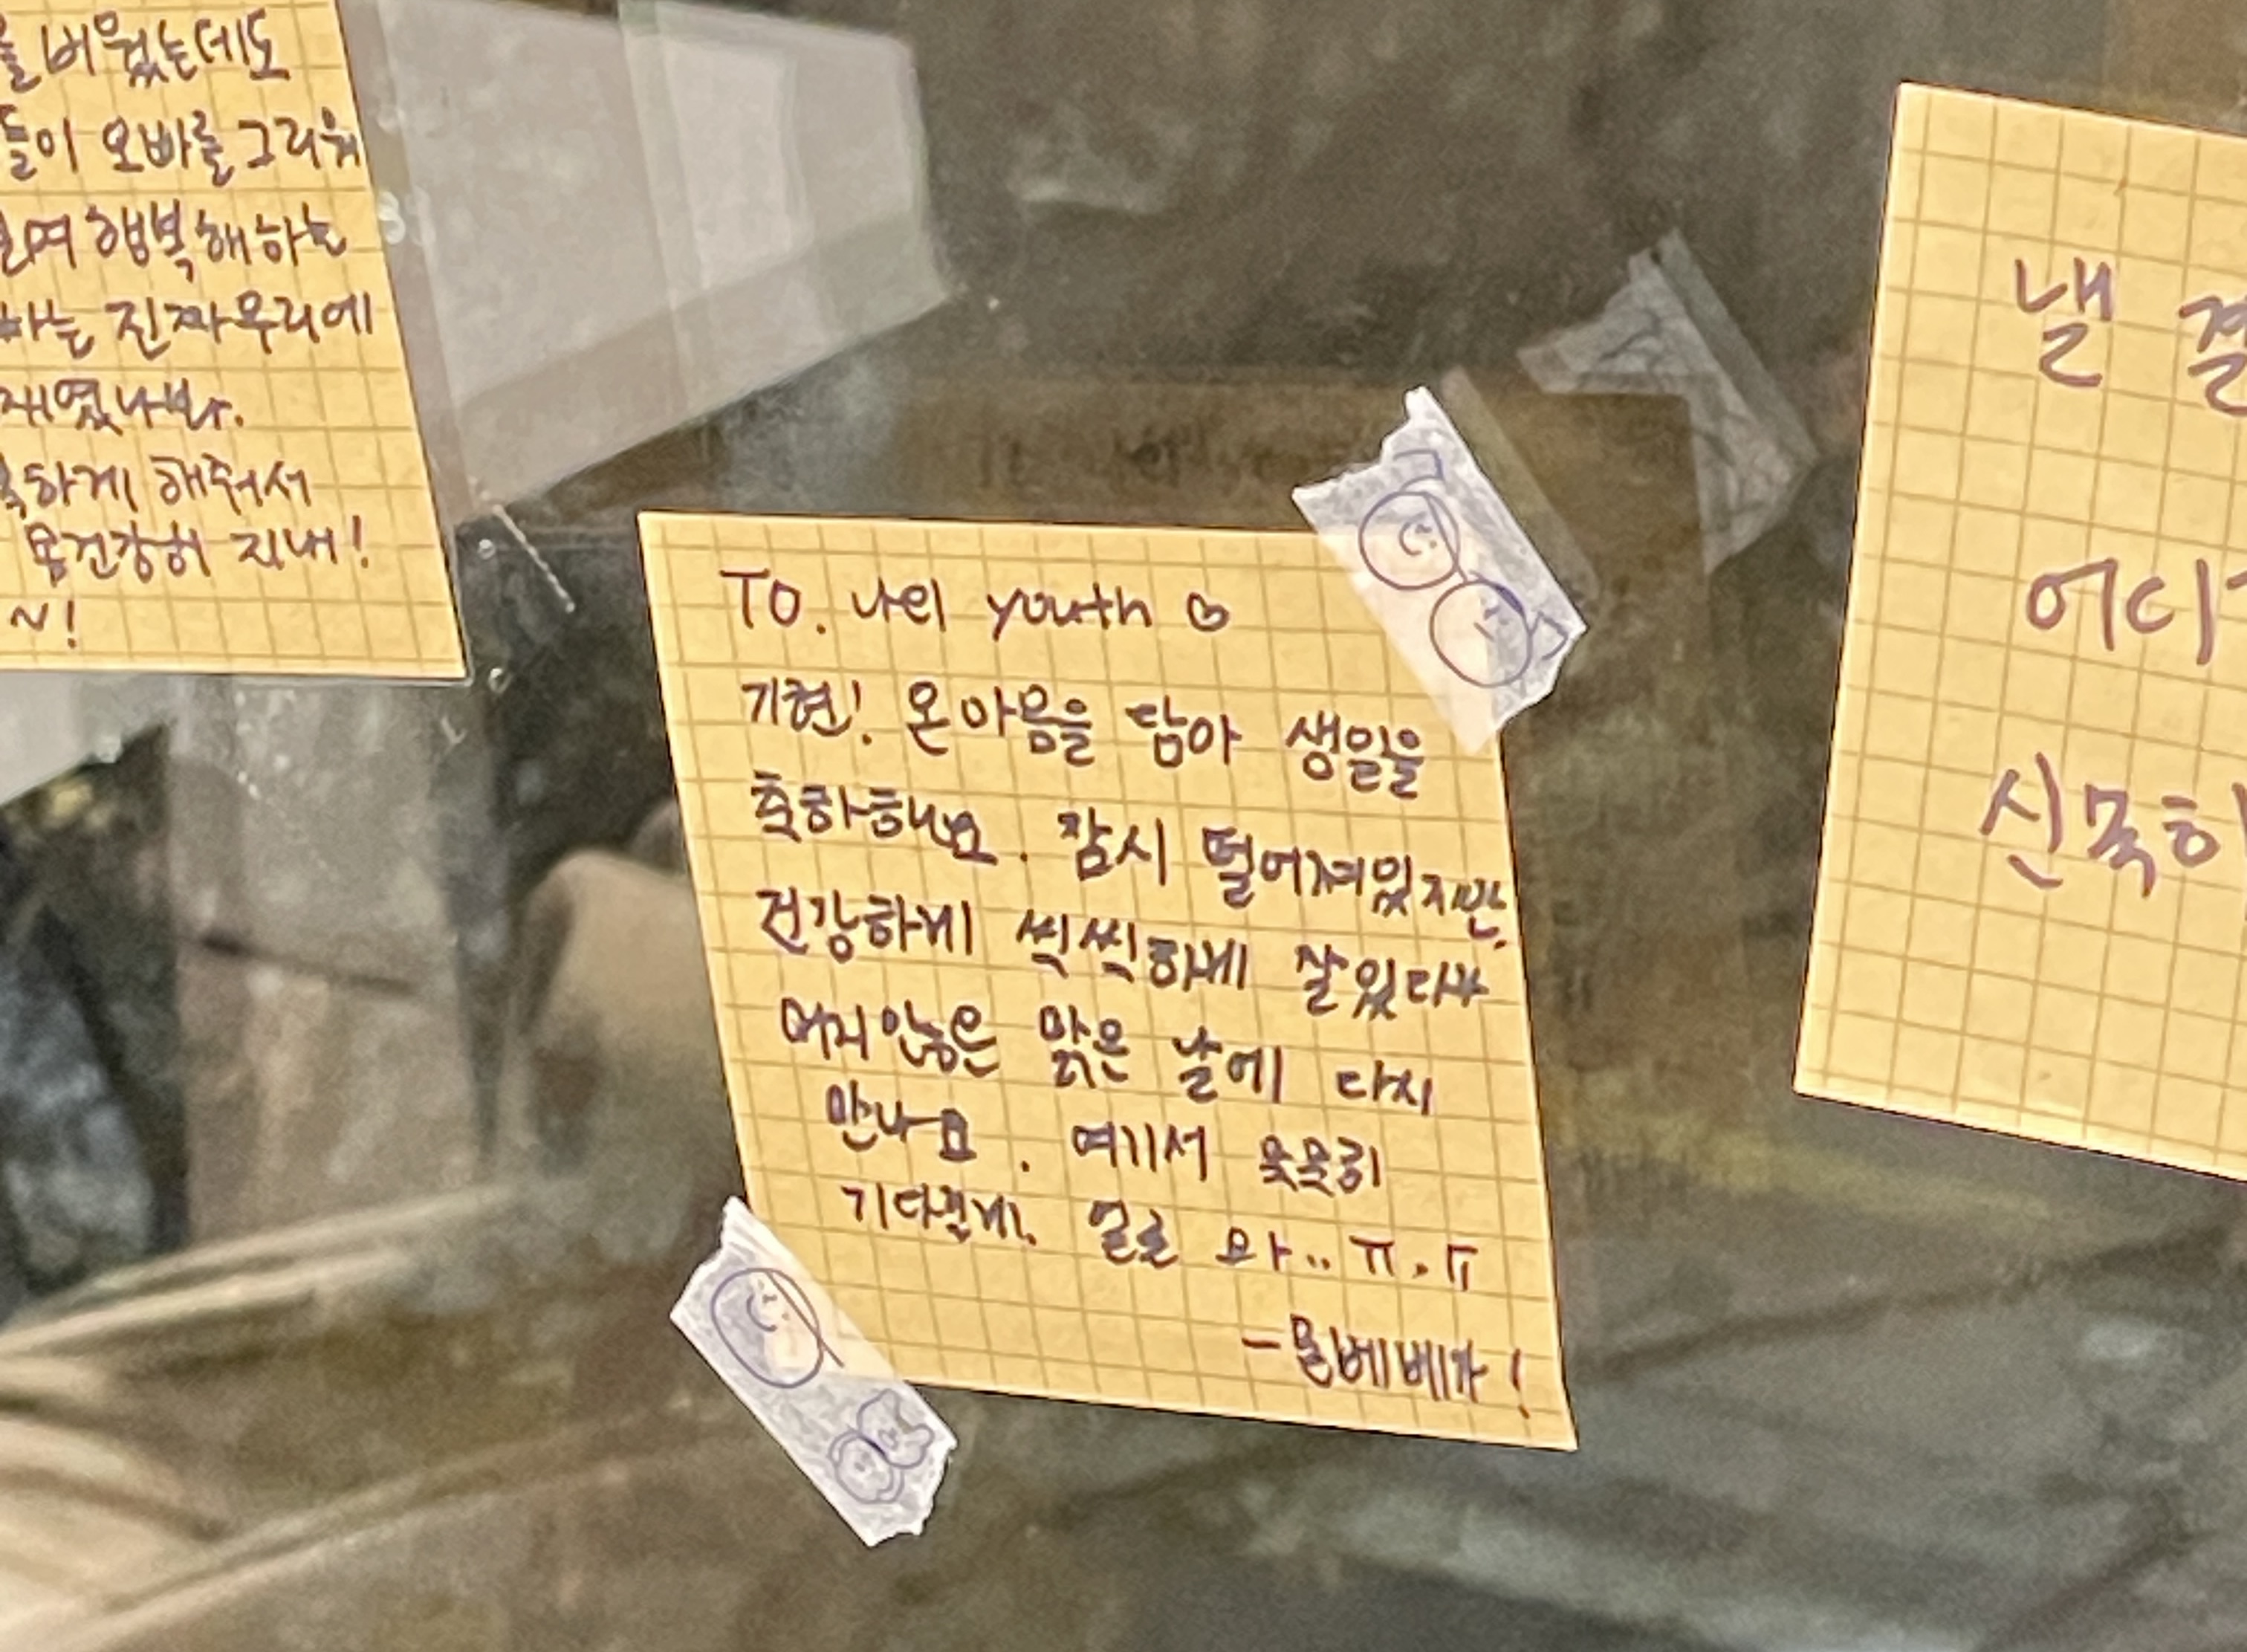 버웠는데도
들이 오빠를 그리워
며 행복해하는
하는 진짜 우리에
였나봐.
하게 해줘서
몸건강히 지내!
~!
TO. 나의 youth ♡
기현! 온마음을 담아 생일을
축하해요. 잠시 떨어져있지만,
건강하게 씩씩하게 잘있다가
머지않은 맑은 날에 다시
만나요. 여기서 굿굿히
기다릴게. 얼른 와.. ㅠ.ㅠ
- 몬베베가!
낼
어디
신묵하